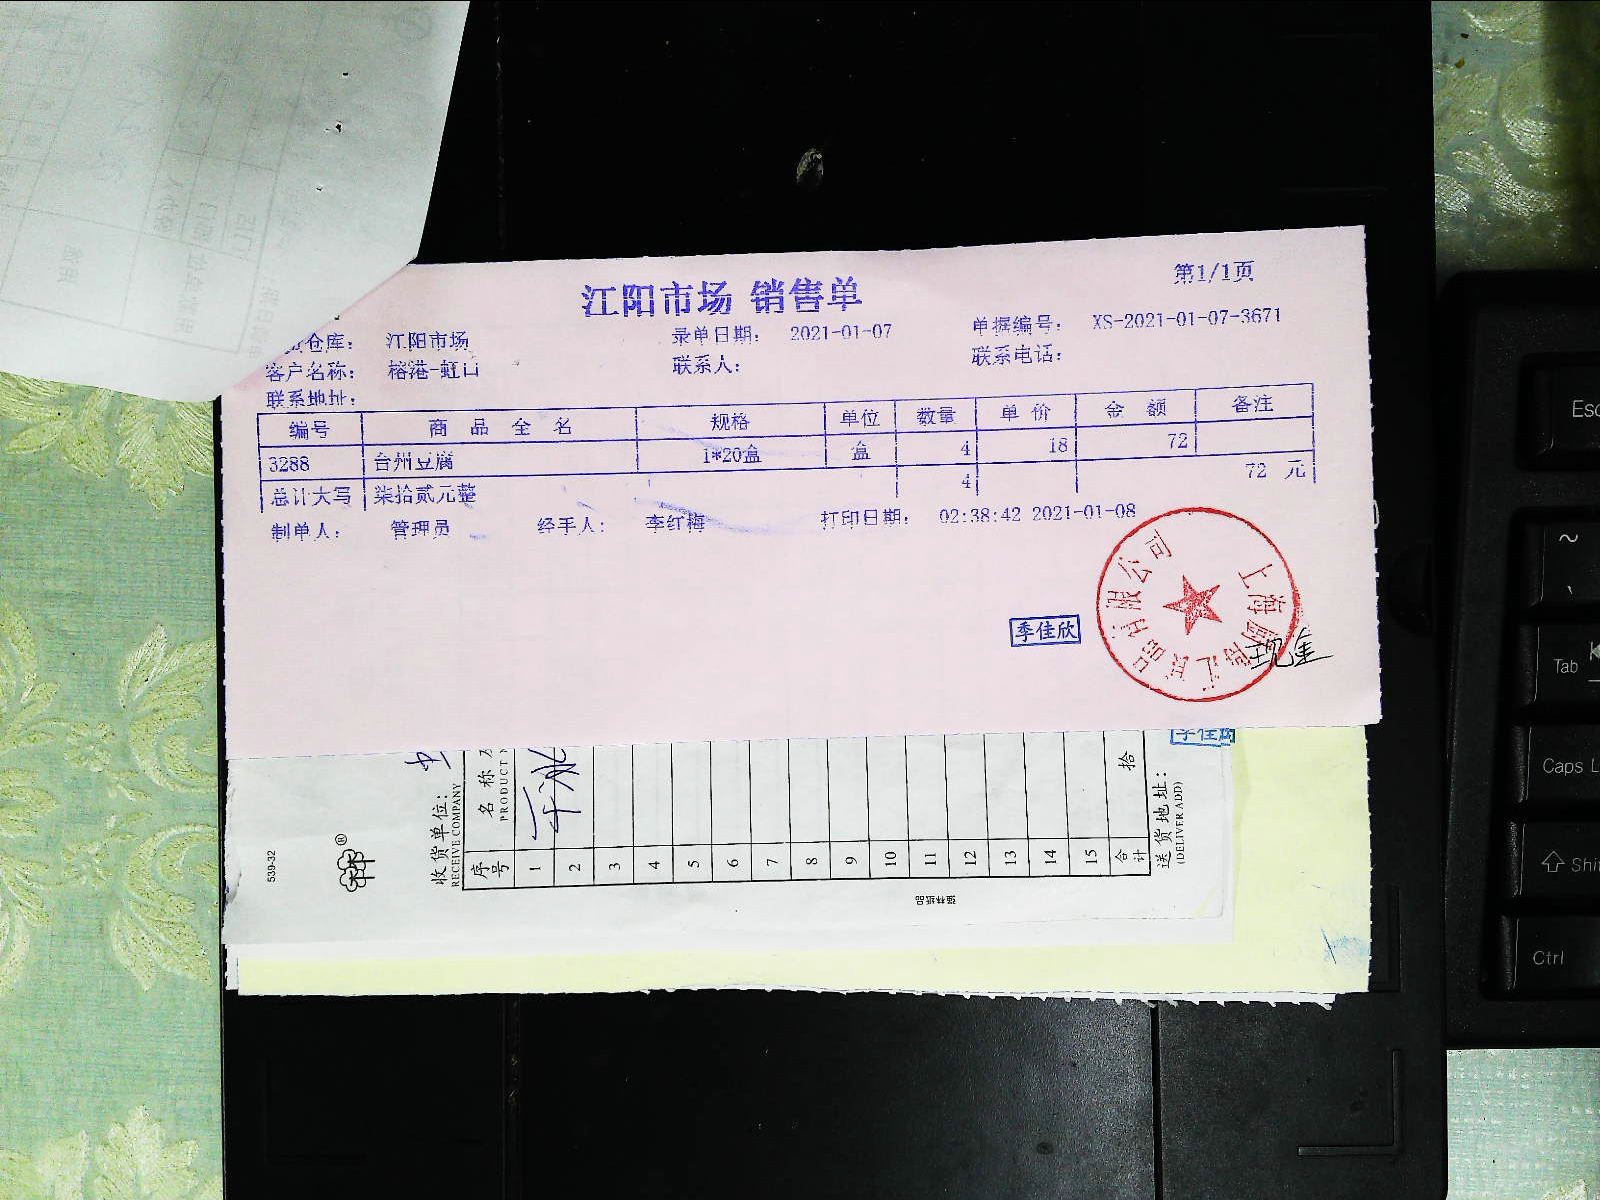 江阳市场 销售单
第1/1页
仓库： 江阳市场 录单日期： 2021-01-07 单据编号： XS-2021-01-07-3671
客户名称： 榕港-虹口 联系人： 联系电话：
联系地址：
编号 商品全名 规格 单位 数量 单价 金额 备注
3288 台州豆腐 1*20盒 盒 4 18 72
总计大写 柒拾贰元整 4 72 元
制单人： 管理员 经手人： 李红梅 打印日期： 02:38:42 2021-01-08
季佳欣
季佳
539-32
收货单位：
RECEIVE COMPANY
序号 名称
PRODUCT
1
2
3
4
5
6
7
8
9
10
11
12
13
14
15
合计 拾
送货地址：
(DELIVER ADD)
Esc
~
Tab
Caps L
Shi
Ctrl